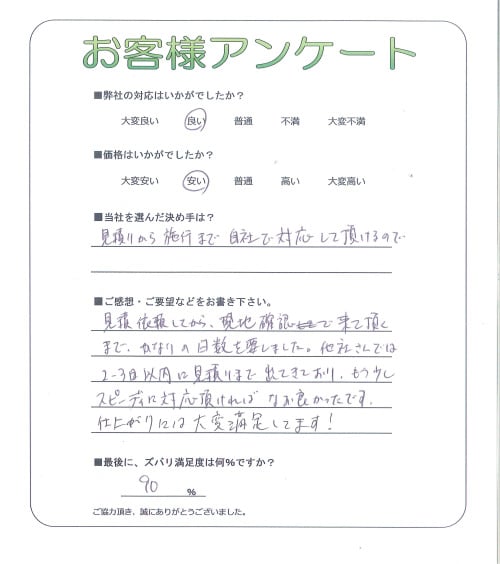 お客様アンケート
■弊社の対応はいかがでしたか？
大変良い 良い 普通 不満 大変不満
■価格はいかがでしたか？
大変安い 安い 普通 高い 大変高い
■当社を選んだ決め手は？
見積りから施行まで自社で対応して頂けるので
■ご感想・ご要望などをお書き下さい。
見積依頼してから、現地確認で来て頂く
まで、かなりの日数を要しました。他社さんでは
2-3日以内に見積りまで出てきており、もう少し
スピーディに対応頂ければなお良かったです。
仕上がりには大変満足してます！
■最後に、ズバリ満足度は何％ですか？
90 %
ご協力頂き、誠にありがとうございました。